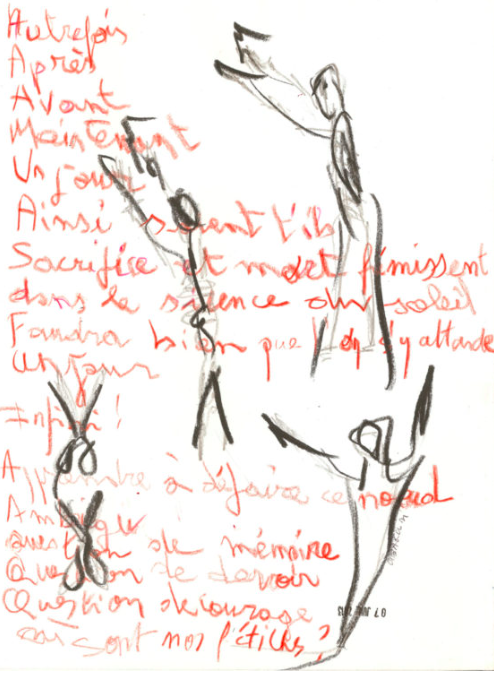 Autrefois
Après
Avant
Maintenant
Un jour
Ainsi soient t'ils
Sacrifice et mort gémissent
dans le silence du soleil
Faudra bien que l'on s'y attarde
Un jour
Infini !
Apprendre à défaire ce noeud
Ambigu
Question de mémoire
Question de devoir
Question de courage
où sont nos fétiches ?